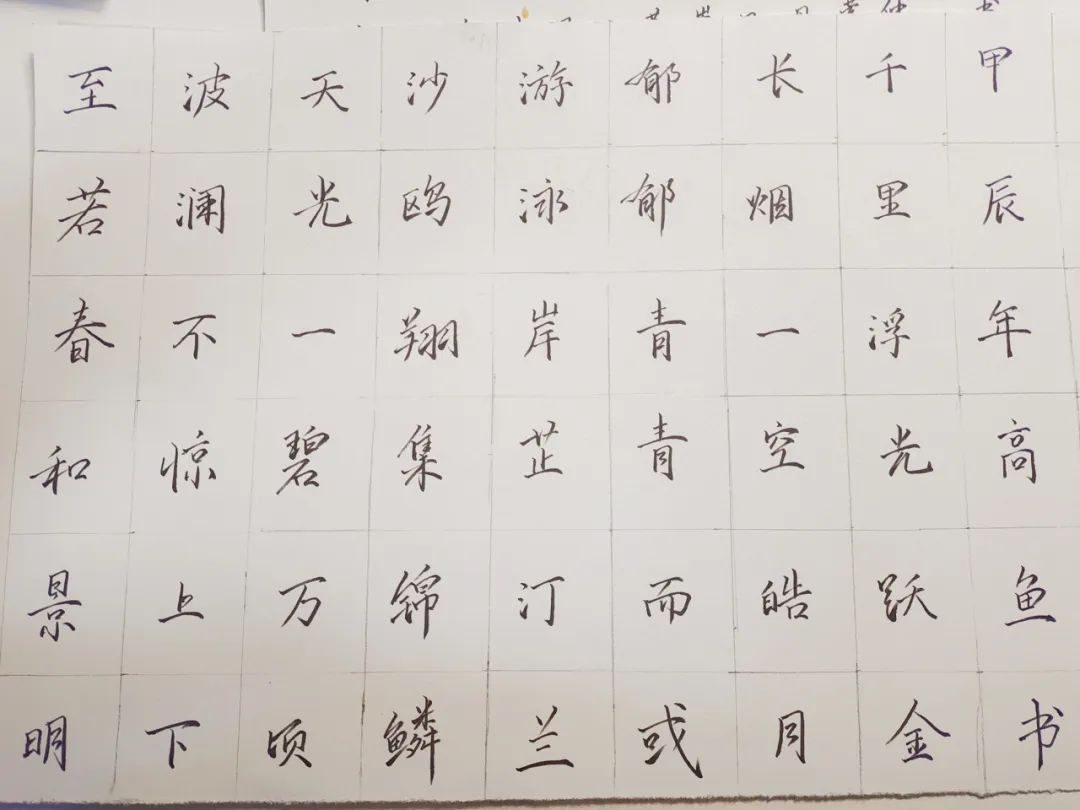 至若春和景明
波澜不惊上下
天光一碧万顷
沙鸥翔集锦鳞
游泳岸芷汀兰
郁郁青青而或
长烟一空皓月
千里浮光跃金
甲辰年高鱼书